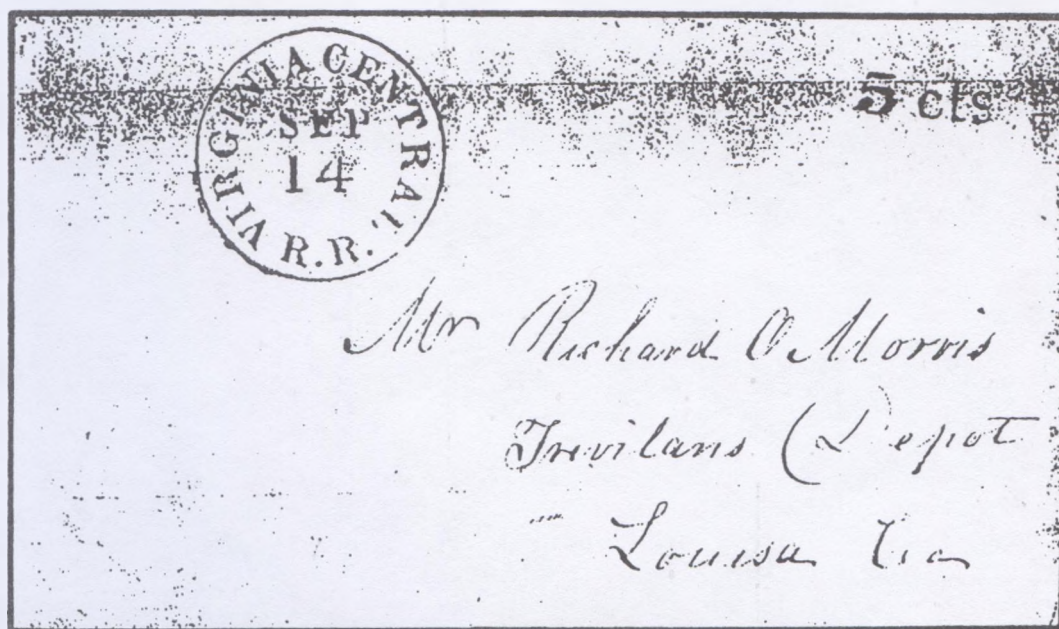 VIRGINIA CENTRAL R.R.
SEP
14
5 cts
Mr Richard O Morris
Trevilans (Depot
Louisa Va